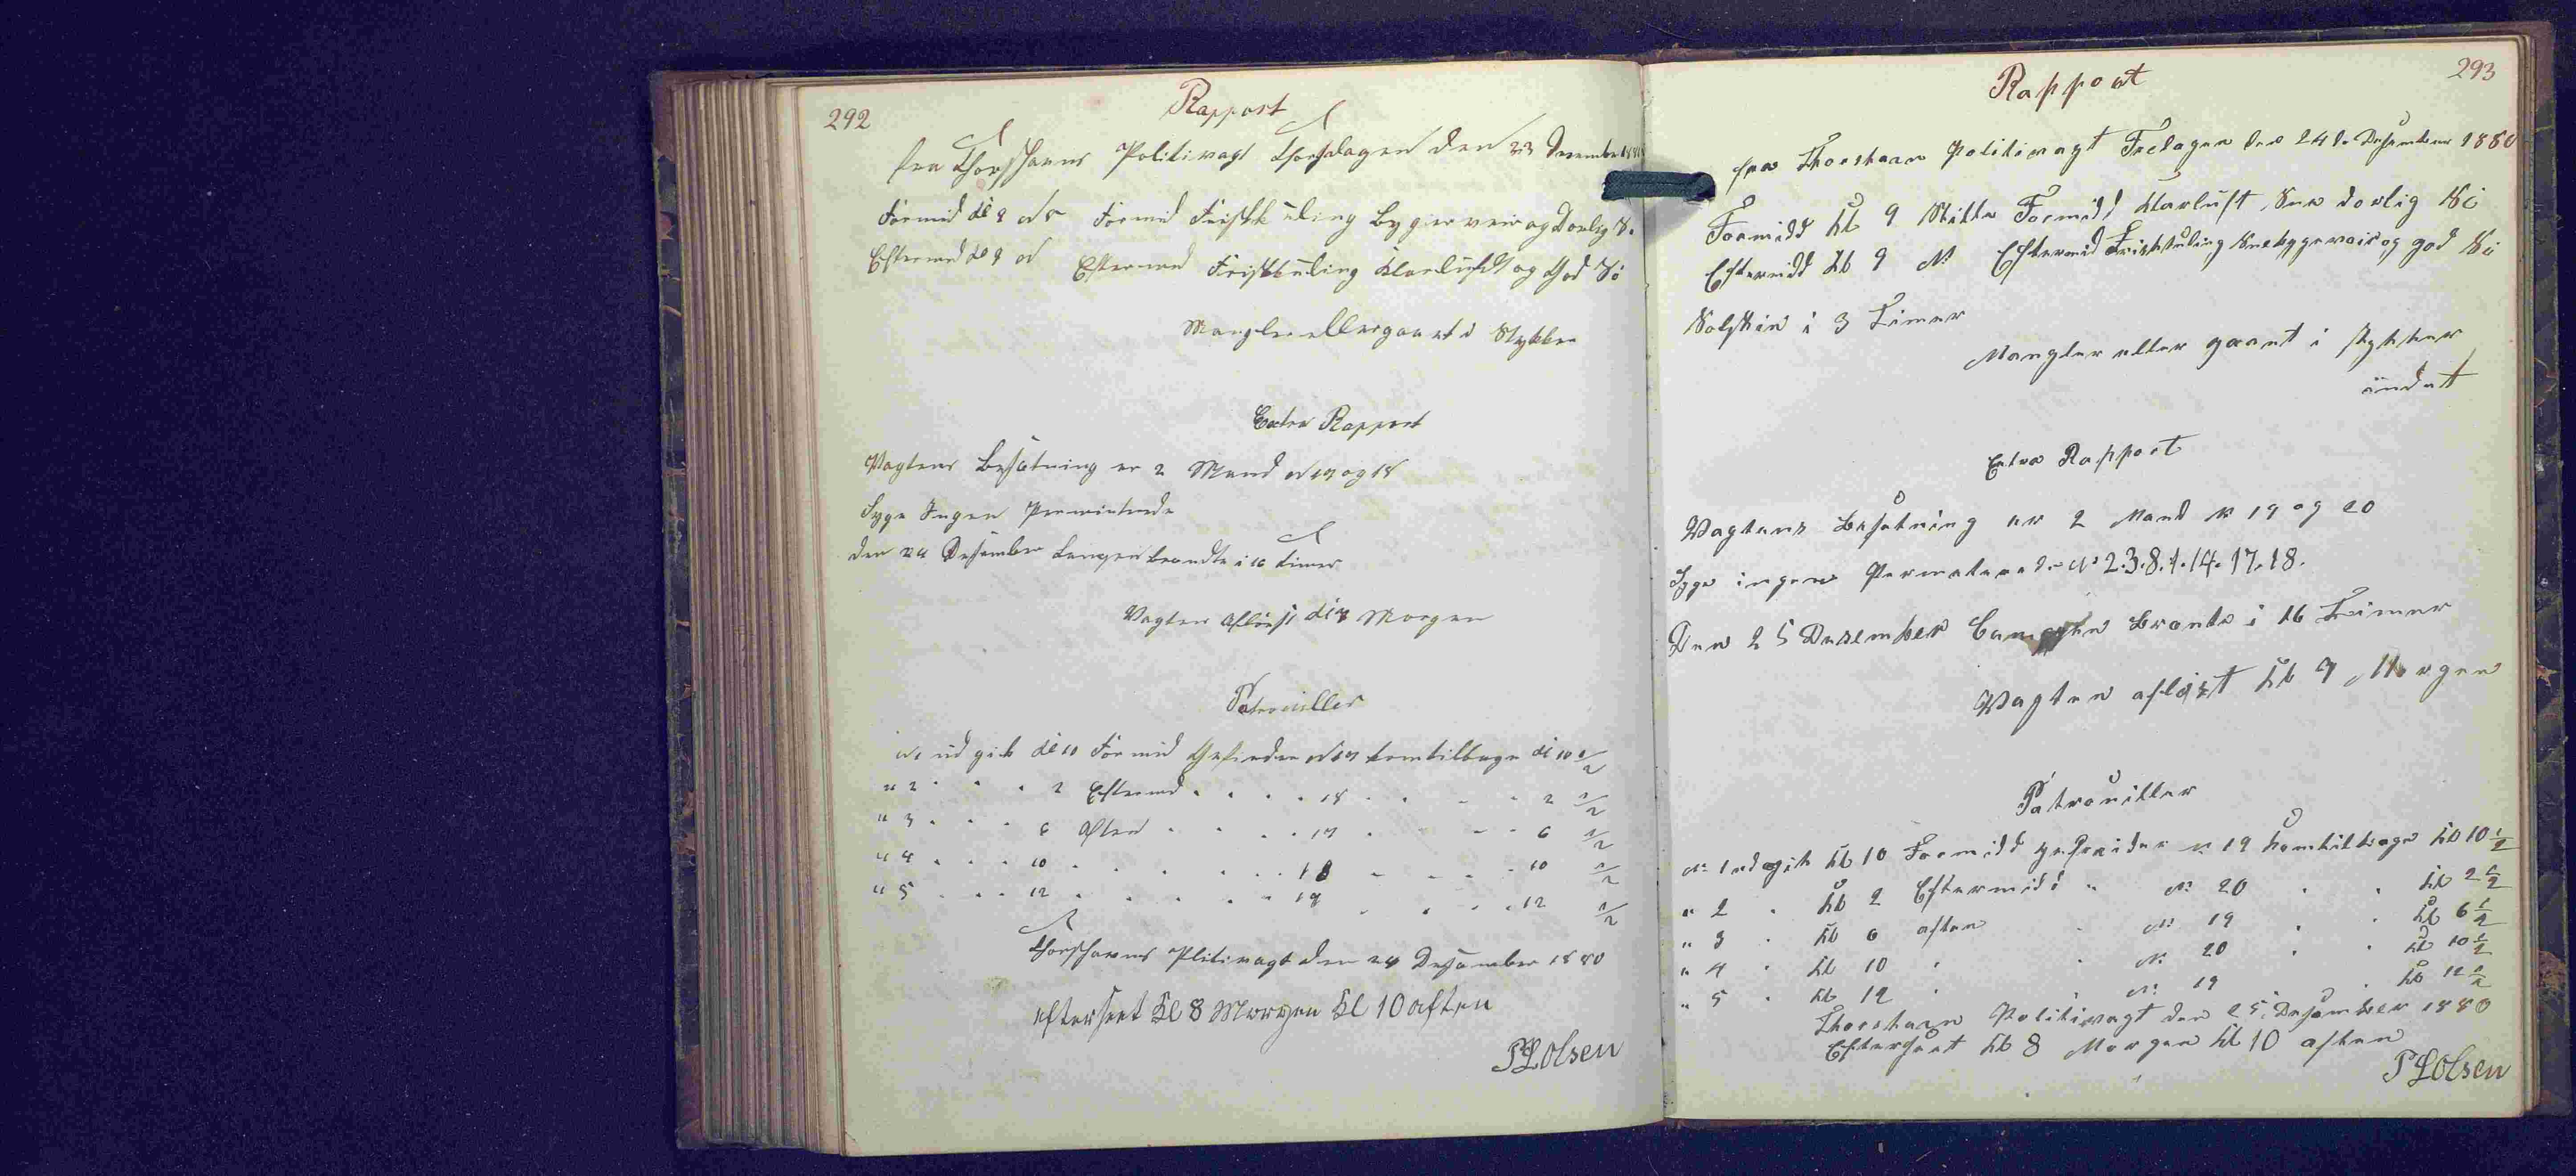 292
Rapport
fra Thorshavns Politivagt Thorsdagen den 23 December
Formid Kl 9 Formid Friskkuling Bygerveir og Daarlig Sö
Eftermd Kl 9 Eftermd Friskkuling Klarluft og God Sö
Mangler eller gaaet i Stykker
Extra Rapport
Vagtens Besætning er 2 Mand No 17 og 18
Syge Ingen Permiterede
den 24 Desember Lampen brændte i 16 timer
Vagten Aflöst Kl 9 Morgen
Patrouiller
No 1 ud gik Kl 10 Formid Gefreider No 17 kom tilbage Kl 10 1/2
" 2 " " " 2 Eftermd " " " 18 " " " 2 1/2
" 3 " " " 6 Aften " " " 17 " " " 6 1/2
" 4 " " " 10 " " " " 18 " " " 10 1/2
" 5 " " " 12 " " " " 17 " " " 12 1/2
Thorshavns Plitivagt den 24 Desember 1880
efterseet Kl 8 Morgen Kl 10 aften
P L Olsen
293
Rapport
fra Thorshavn Politivagt Fredagen den 24de Desember 1880
Formidd Kl 9 Stille Formidd Klarluft Sne dorlig Sö
Eftermidd Kl 9 N Eftermid Friskkuling Snebygerveir og god Sö
Solskin i 3 Timer
Mangler eller gaaet i stykker
indet
Extra Rapport
Vagtens Besötning er 2 Mand No 19 og 20
Syge ingen Permiterede No 2.3.8.1.14.17.18.
Den 25 Desember Lampen Brænte i 16 Timer
Vagten aflöst Kl 9 Morgen
Patrouiller
No 1 udgik Kl 10 Formidd gefreider No 19 komtilbage Kl 10 1/2
" 2 " Kl 2 Eftermidd " No 20 " " Kl 2 1/2
" 3 " Kl 6 aften " No 19 " " Kl 6 1/2
" 4 " Kl 10 " " No 20 " " Kl 10 1/2
" 5 " Kl 12 " " No 19 " " Kl 12 1/2
Thorshavn Politivagt den 25 Desember 1880
Efterseet Kl 8 Morgen Kl 10 aften
P L Olsen